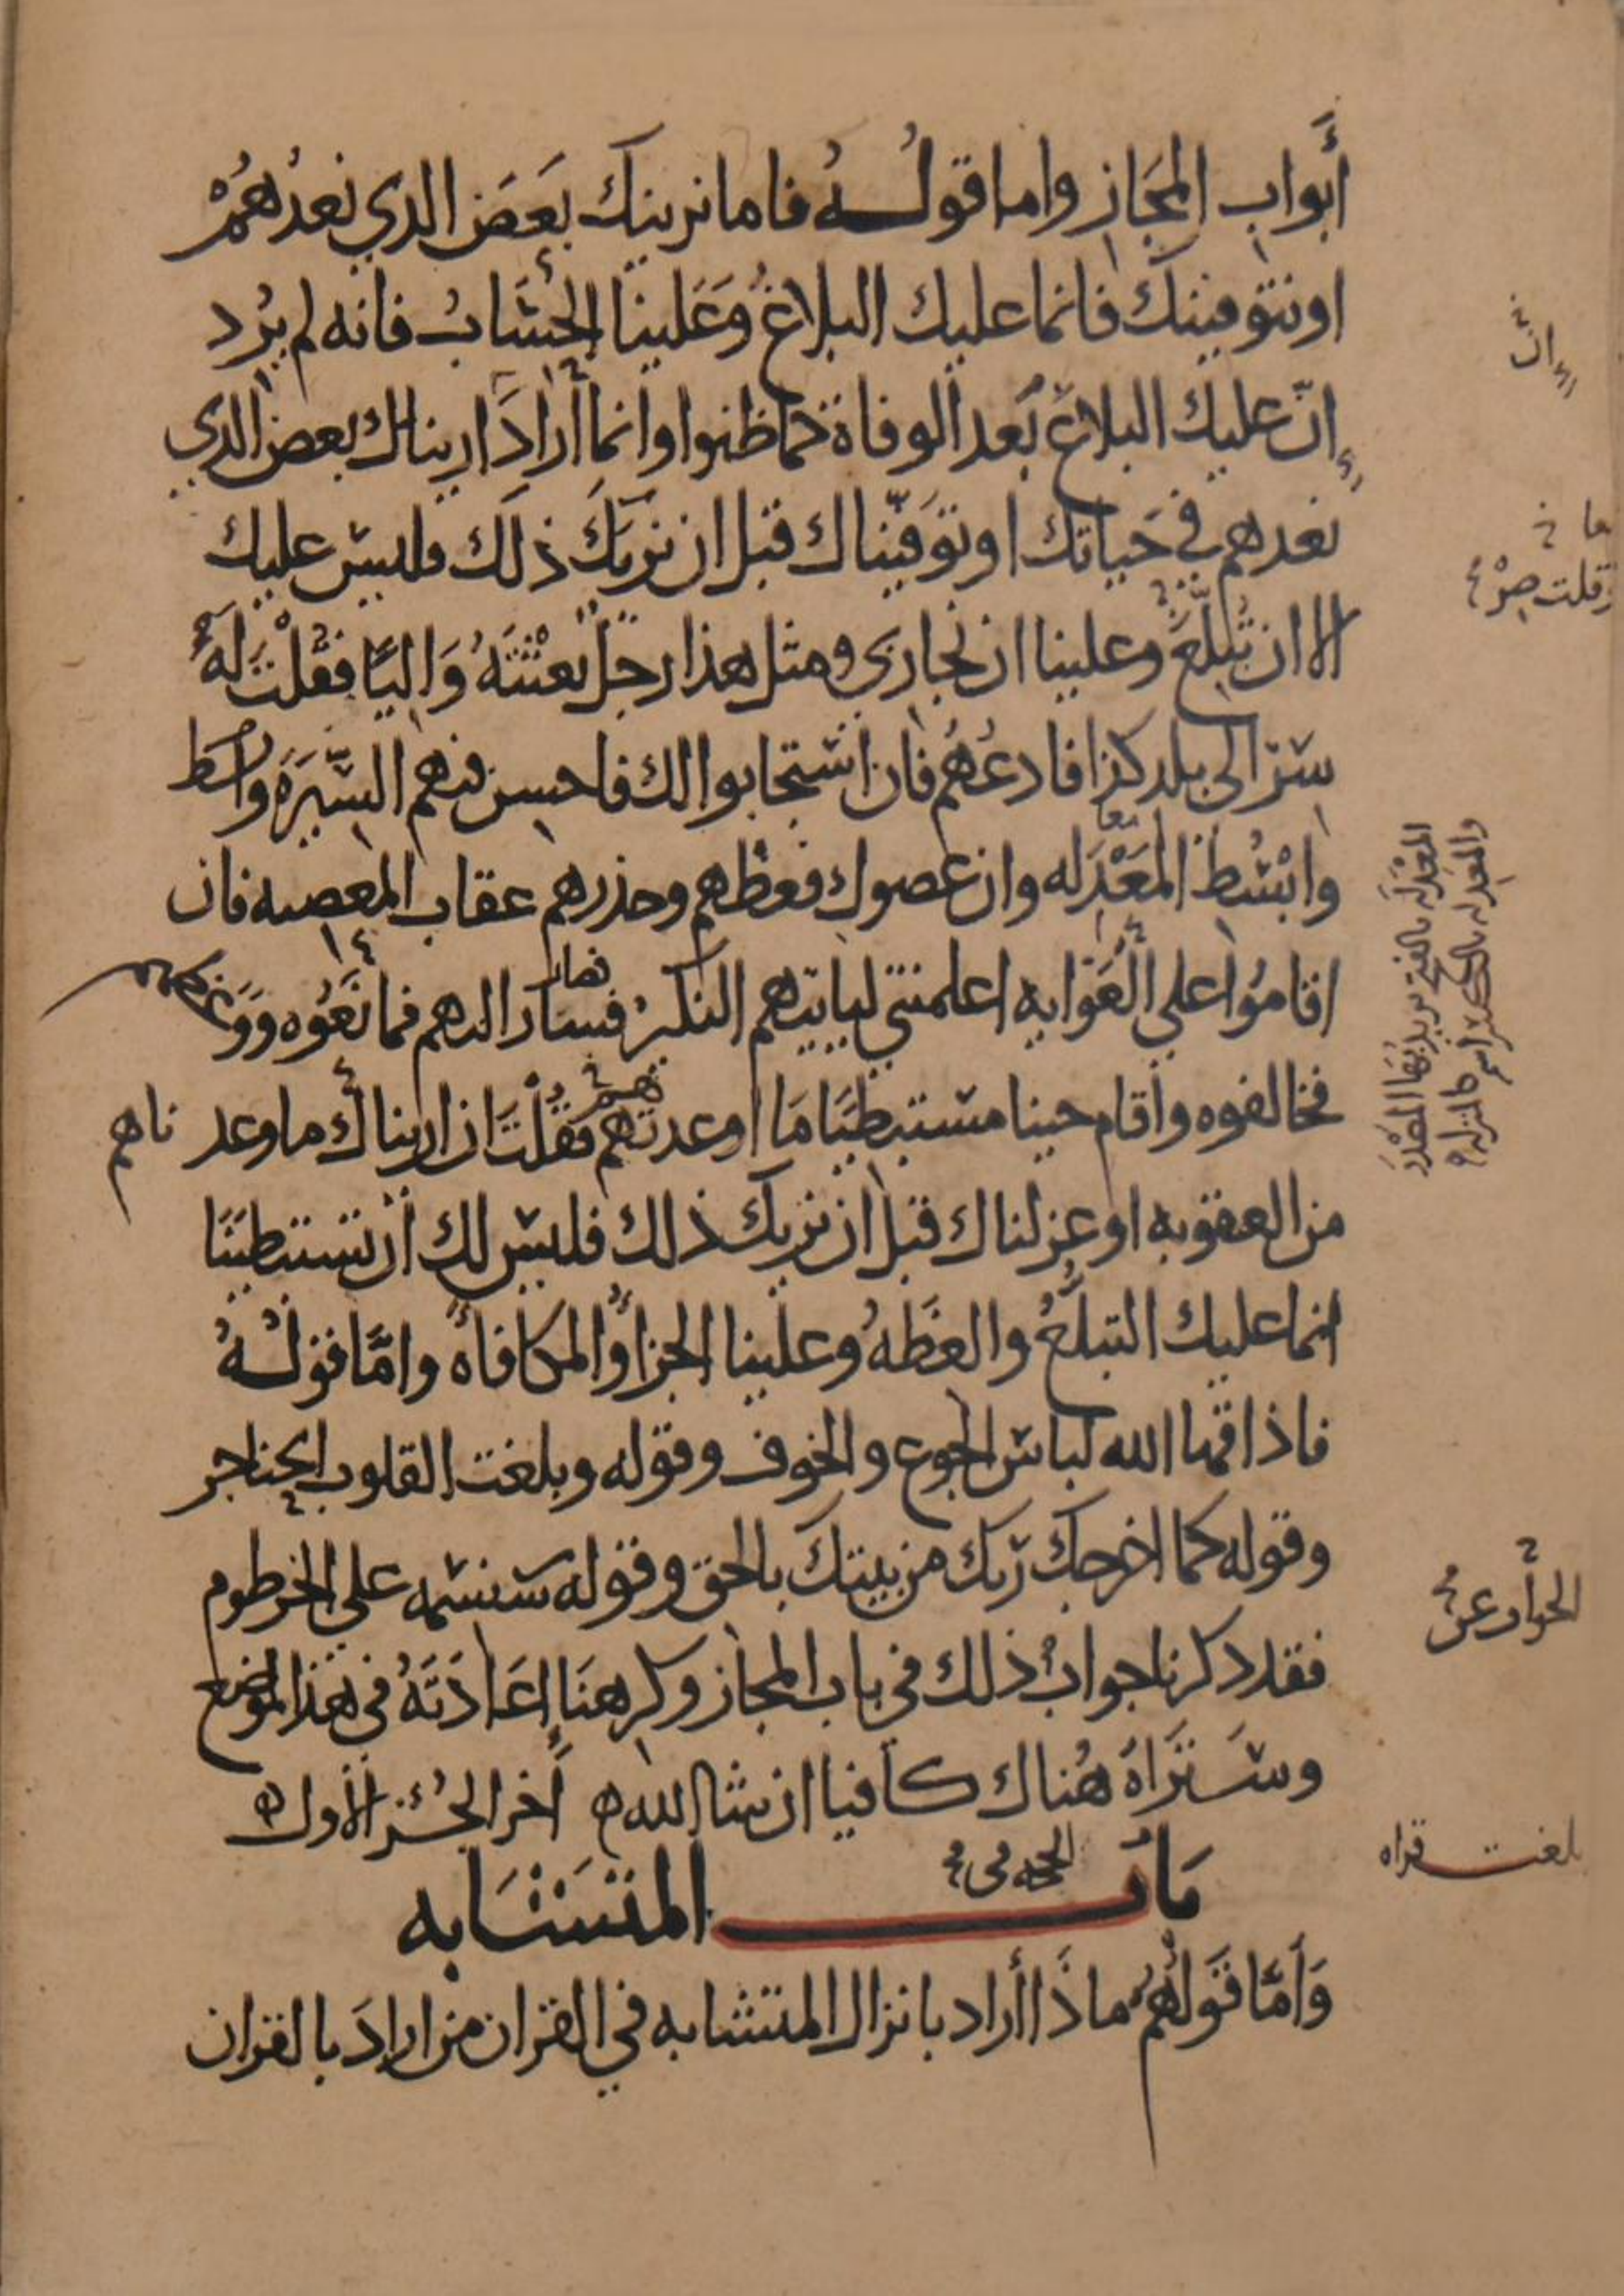 أبواب المجاز واما قوله فاما نرينك بعض الدي نعدهم
او نتوفينك فانما عليك البلاغ وعلينا الحساب فانه لم يرد
ان عليك البلاغ بعد الوفاة كما ظنوا وانما أراد ان اريناك بعض الدي
نعدهم في حياتك او توفيناك قبل ان نريك ذلك فليس عليك
الا ان تبلغ وعلينا ان نجازي ومثل هذا رجل بعثته واليا فقلت له
سر الى بلد كذا فادعهم فان استجابوا لك فاحسن فيهم السيرة
وابسط المعدله وان عصوك فعظهم وحذرهم عقاب المعصيه فان
اقاموا على الغوايه اعلمتني ليأتيهم النكير فسار اليهم فمانعوه
فخالفوه وأقام حينا مستبطيا ما اوعدتهم فقلت ان اريناك ما وعدناهم
من العقوبه او عزلناك قبل ان نريك ذلك فليس لك ان تستبطينا
انما عليك التبليغ والعظه وعلينا الجزأ والمكافأه واما قوله
فاذاقها الله لباس الجوع والخوف وقوله وبلغت القلوب الحناجر
وقوله كما اخرجك ربك من بيتك بالحق وقوله سنسمه على الخرطوم
فقد دكرنا جواب ذلك في باب المجاز وكرهنا إعادته في هذا الموضع
وستراه هناك كافيا ان شا الله ه أخر الجزء الأول ه
باب المتشابه
الحجه في
وأما قولهم ماذا أراد بانزال المتشابه في القران من اراد بالقران
ان
قلت
المعدله بالفتح
والمعدله بالكسر اسم كالمنزله
الجواب عن
بلغت قراه